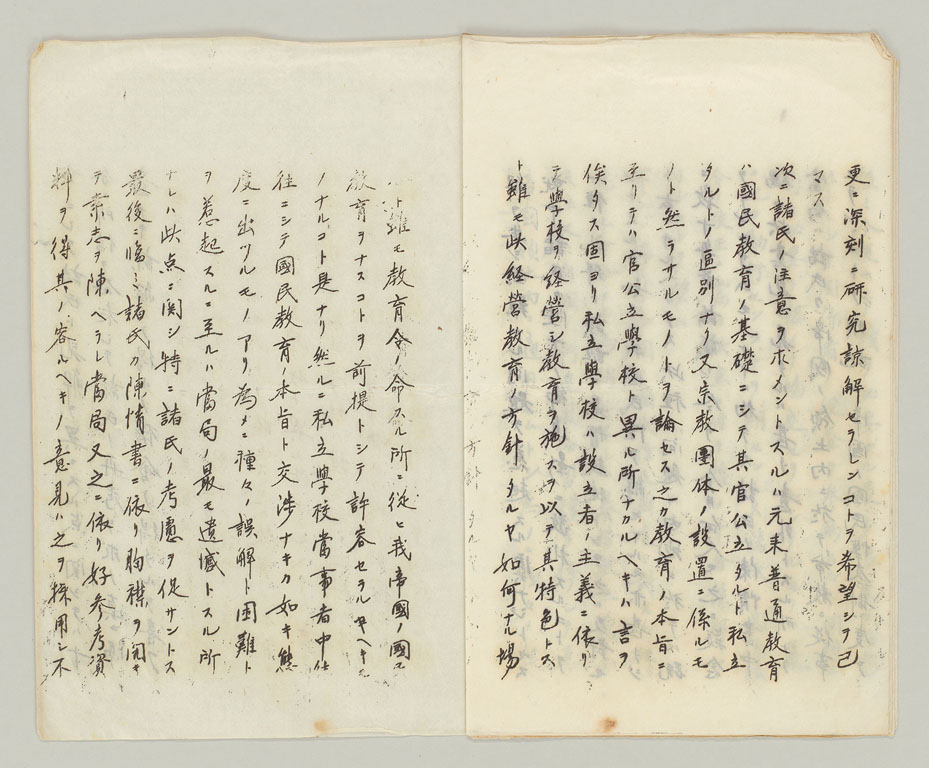 更ニ深刻ニ研究諒解セラレンコトヲ希望シヲ己
マス
次ニ諸氏ノ注意ヲ求メントスルハ元来普通教育
ハ國民教育ノ基礎ニシテ其官公立タルト私立
タルトノ區別ナリ又宗教團体ノ設置ニ係ルモ
ノト然ラサルモノトヲ論セス之カ教育ノ本旨ニ
至リテハ官公立學校ト異ル所ナカルヘキハ言ヲ
俟タス固ヨリ私立學校ハ設立者ノ主義ニ依リ
テ學校ヲ経營シ教育ヲ施スヲ以テ其特色トス
ト雖モ此経營教育ノ方針タルヤ如何ナル場
ト雖モ教育令ノ命スル所ニ従ヒ我帝國ノ國民
教育ヲナスコトヲ前提トシテ許容セラルヽヘキモ
ノナルコト是ナリ然ルニ私立學校當事者中往
往ニシテ國民教育ノ本旨ト交渉ナキカ如キ態
度ニ出ツルモノアリ為メニ種々ノ誤解ト困難ト
ヲ惹起スルニ至ルハ當局ノ最モ遺憾トスル所
ナレハ此点ニ関シ特ニ諸氏ノ考慮ヲ促サントス
最後ニ臨ミ諸氏カ陳情書ニ依リ胸襟ヲ開キ
テ素志ヲ陳ヘラレ當局又之ニ依リ好参考資
料ヲ得其ノ容ルヘキノ意見ハ之ヲ採用シ不